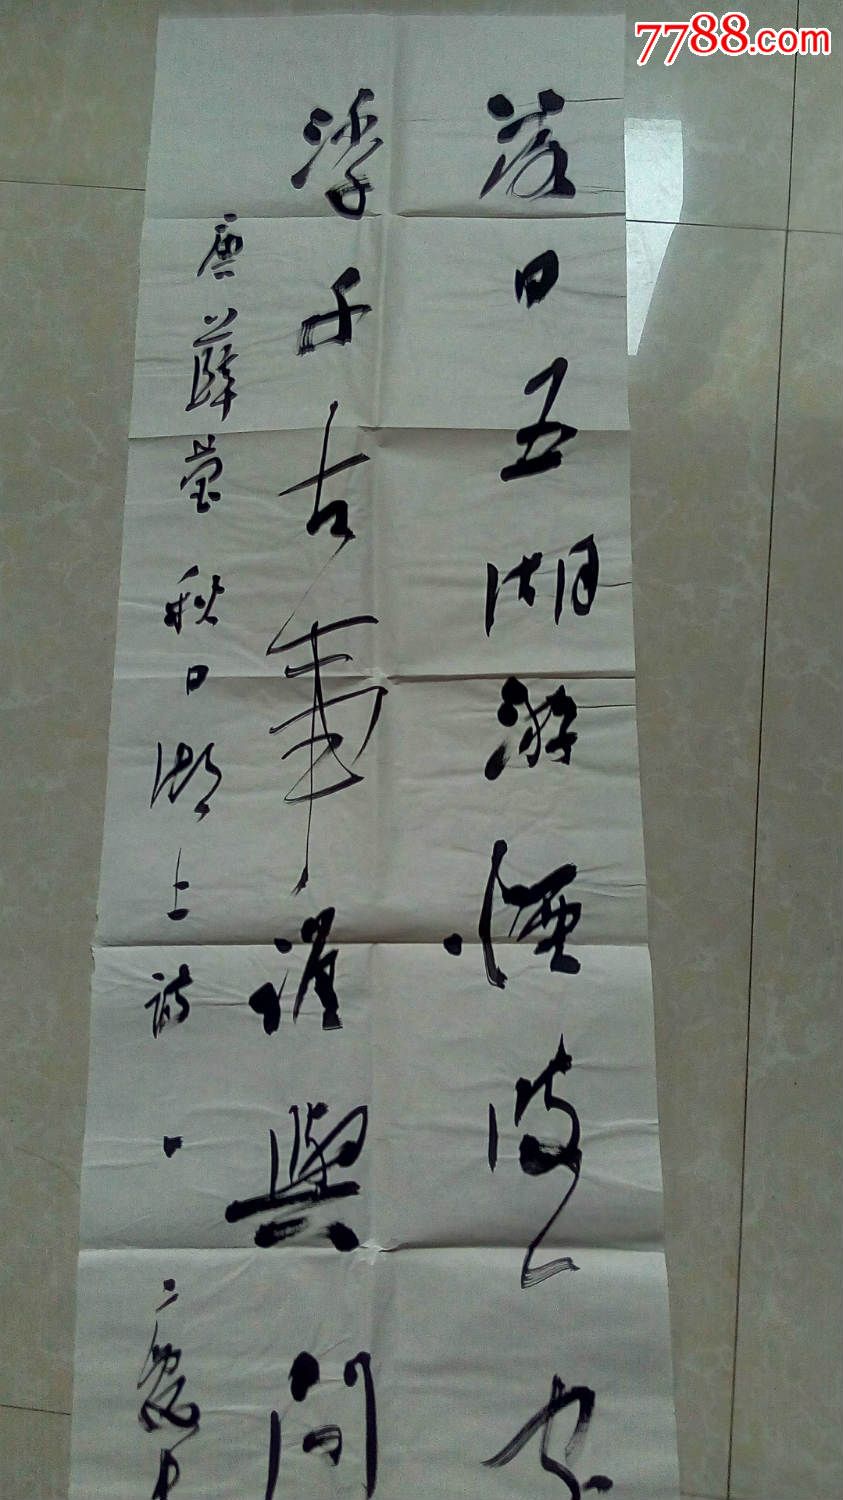 7788.com
落日五湖游烟波处
浮千古事谁與问
唐薛莹秋日湖上诗